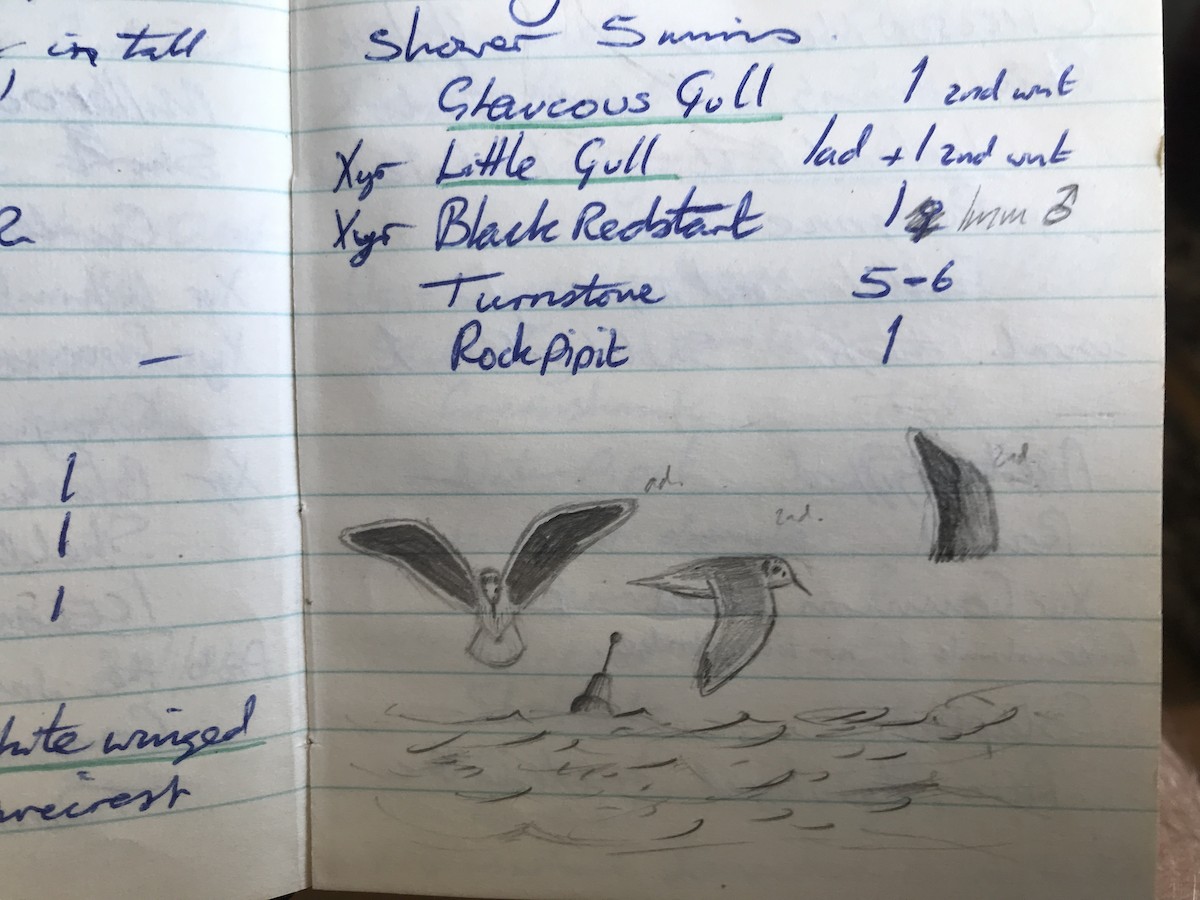 in tall
1
1
1
white winged
Shower 5 mins.
Glaucous Gull 1 2nd wnt
Xyr Little Gull 1ad + 1 2nd wnt
Xyr Black Redstart 1 imm ♂
Turnstone 5-6
Rock pipit 1
ad.
2nd.
2nd.